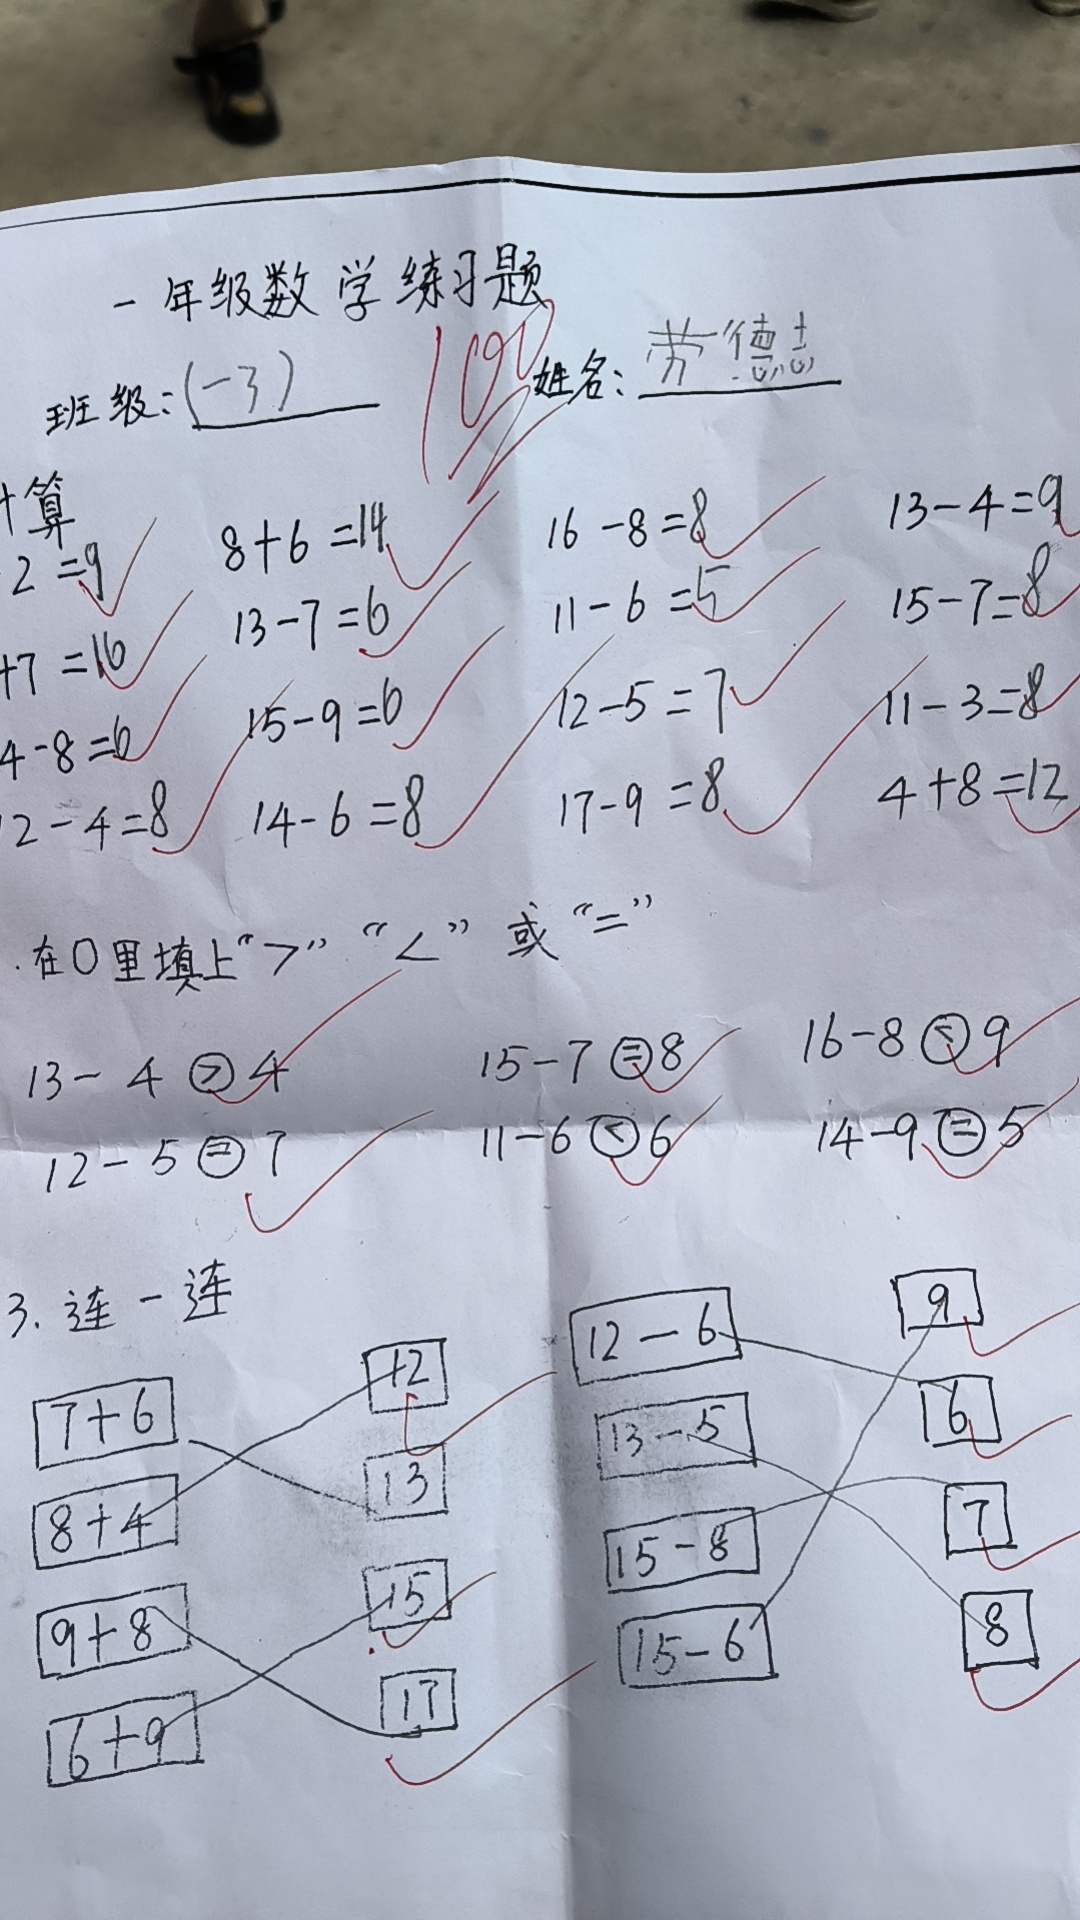 一年级数学练习题
100
班级:(一3) 姓名:劳德志
计算
2=9 8+6=14 16-8=8 13-4=9
+7=16 13-7=6 11-6=5 15-7=8
4-8=6 15-9=6 12-5=7 11-3=8
12-4=8 14-6=8 17-9=8 4+8=12
.在O里填上“>”“<”或“=”
13-4>4 15-7=8 16-8<9
12-5=7 11-6<6 14-9=5
3.连一连
7+6 12 12-6 9
8+4 13 13-5 6
9+8 15 15-8 7
6+9 17 15-6 8